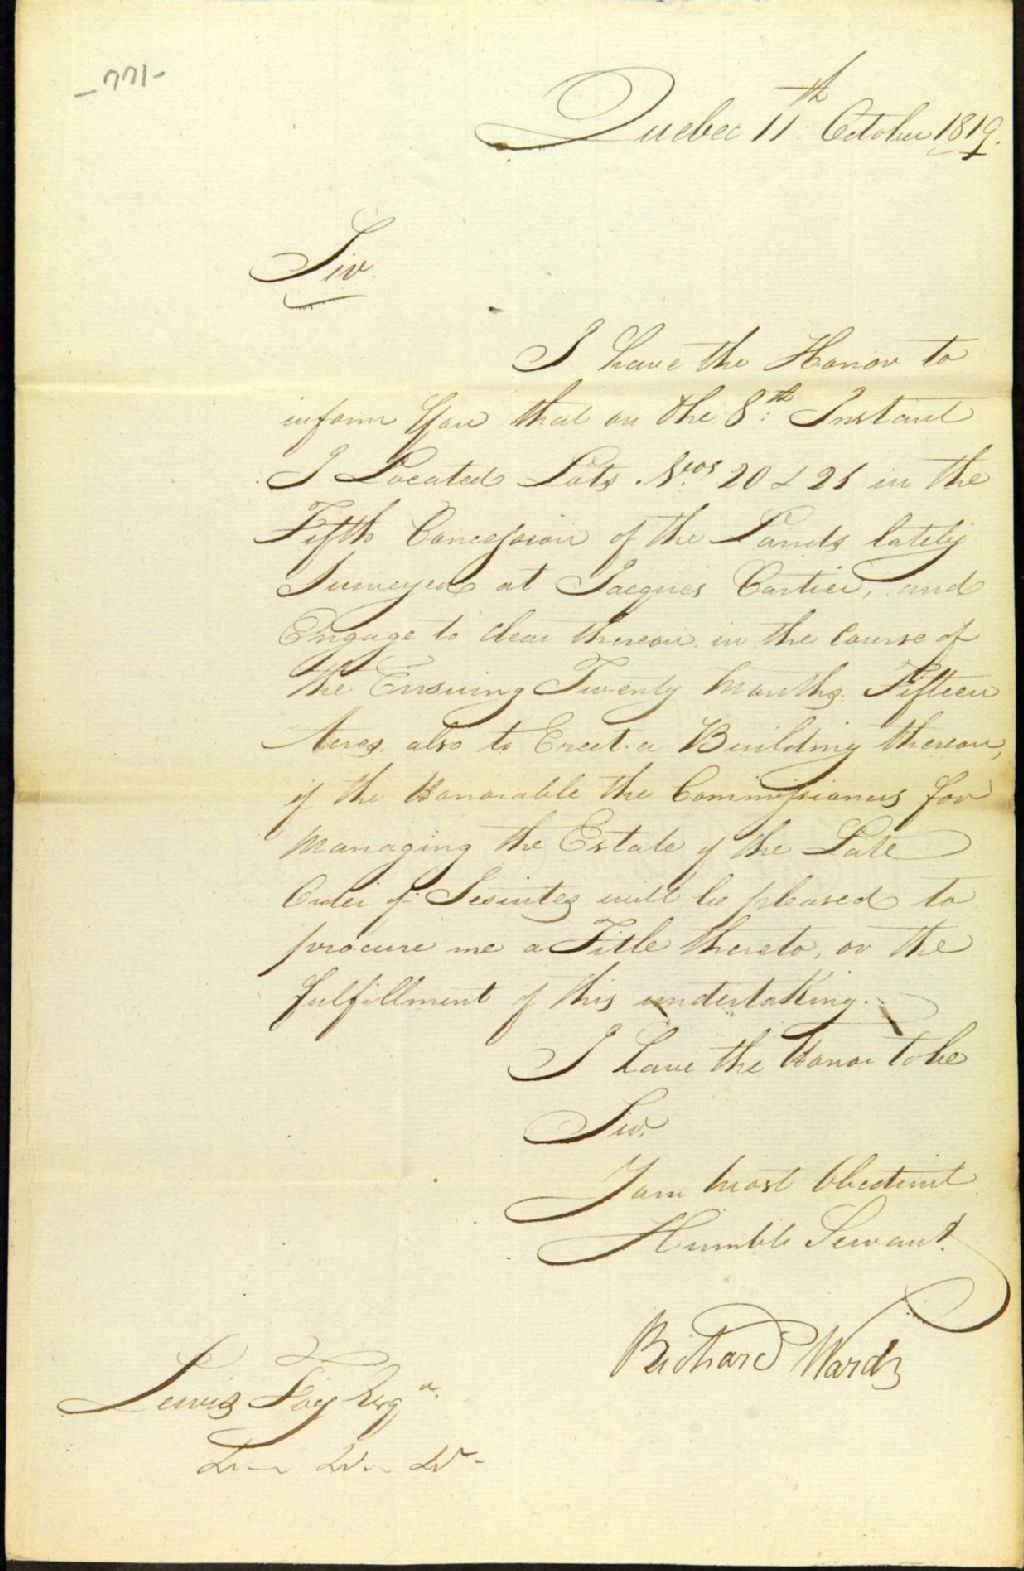 -771-
Quebec 11th October 1819.
Sir
I have the Honor to
inform You that on the 8th Instant
I Located Lots Nos 20 & 21 in the
Fifth Concession of the Lands lately
Surveyed at Jacques Cartier, and
Engage to clear thereon in the Course of
the Ensuing Twenty Months Fifteen
Acres, also to Erect a Building thereon,
if the Honorable the Commissioners for
Managing the Estate of the Late
Order of Jesuites will be pleased to
procure me a Title thereto, on the
fulfillment of this undertaking.
I have the Honor to be
Sir.
Your most Obedient
Humble Servant.
Richard Wards
Lewis Foy Esqr.